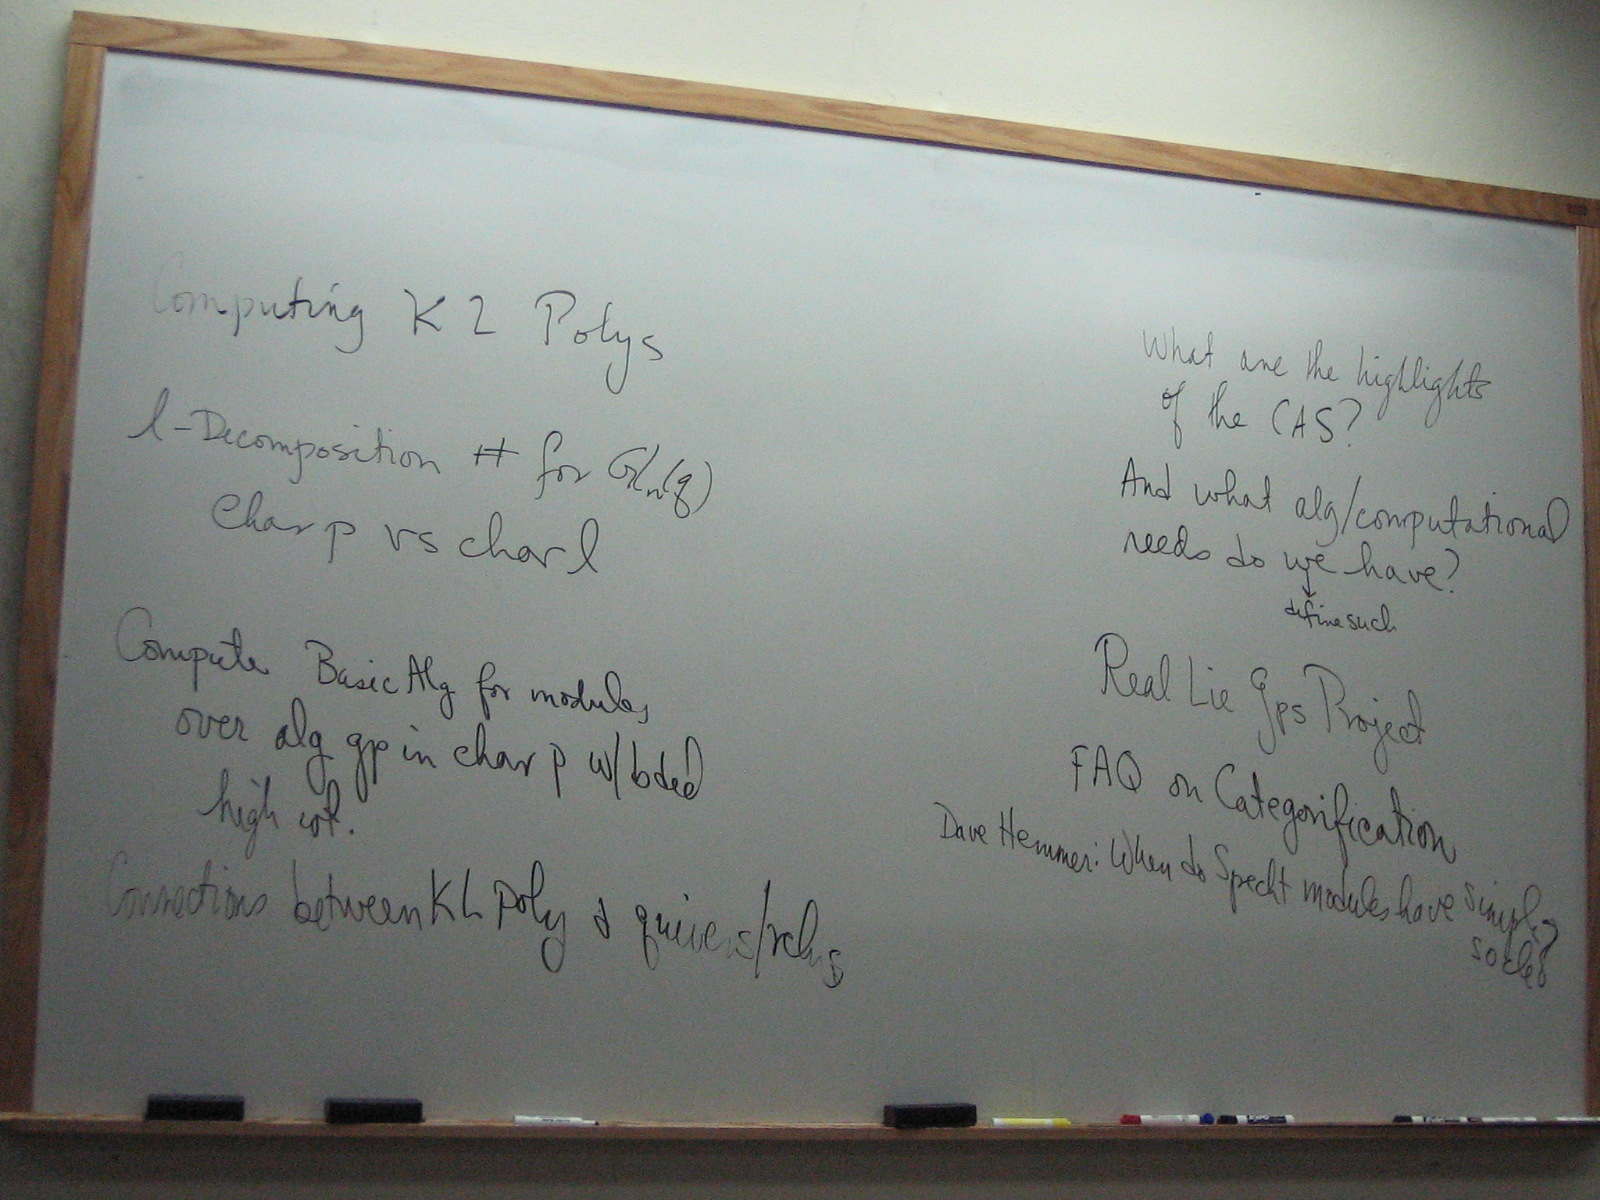 Computing K L Polys
l-Decomposition # for Gln(q)
Char p vs char l
Compute Basic Alg for modules
over alg gp in char p w/ bded
high wt.
Connections between KL Poly & quivers/relns
What are the highlights
of the CAS?
And what alg/computational
needs do we have?
define such
Real Lie Gps Project
FAQ on Categorification
Dave Hemmer: When do Specht modules have simple
socles?